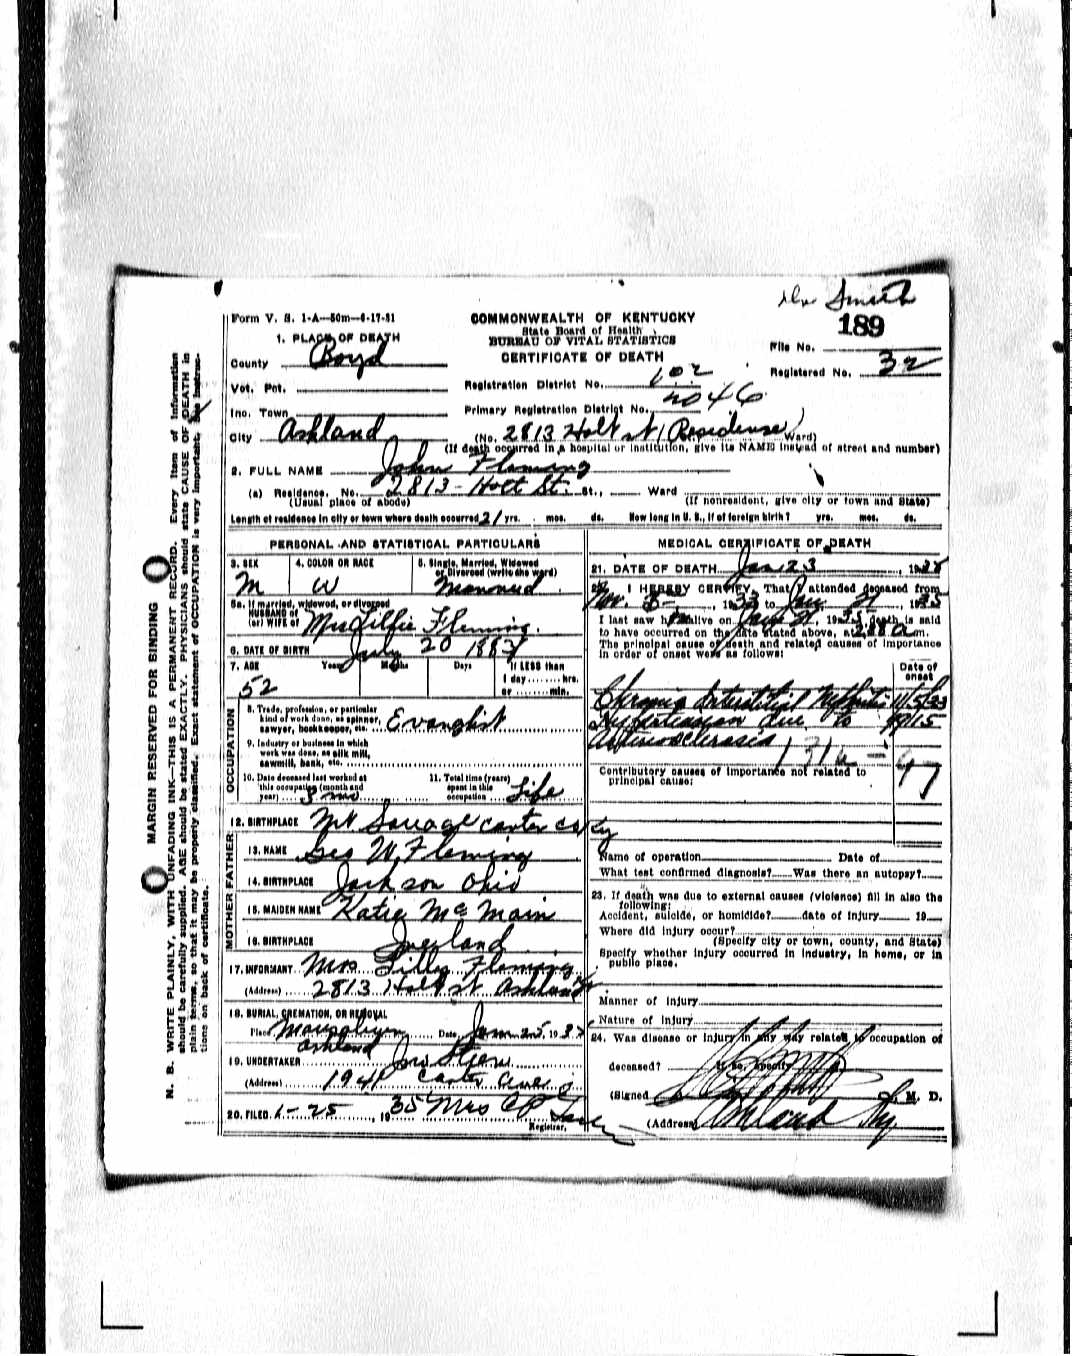 Dr Smith
189
Form V. S. 1-A—50m—6-17-31
COMMONWEALTH OF KENTUCKY
State Board of Health
BUREAU OF VITAL STATISTICS
CERTIFICATE OF DEATH
1. PLACE OF DEATH
County Boyd
Vot. Pct.
Inc. Town
City Ashland
File No.
Registered No. 32
Registration District No. 102
Primary Registration District No. 2046
(No. 2813 Holt St (Residense) Ward)
(If death occurred in a hospital or institution, give its NAME instead of street and number)
2. FULL NAME John Fleming
(a) Residence. No. 2813 - Holt St. St., Ward
(Usual place of abode) (If nonresident, give city or town and State)
Length of residence in city or town where death occurred 21 yrs. mos. ds. How long in U. S., if of foreign birth? yrs. mos. ds.
PERSONAL AND STATISTICAL PARTICULARS
3. SEX M
4. COLOR OR RACE W
5. Single, Married, Widowed
or Divorced (write the word)
Married
5a. If married, widowed, or divorced
HUSBAND of
(or) WIFE of Mrs Lillie Fleming.
6. DATE OF BIRTH July 20 1883
7. AGE Years Months Days If LESS than
1 day hrs.
or min.
52
OCCUPATION
8. Trade, profession, or particular
kind of work done, as spinner,
sawyer, bookkeeper, etc. Evanglist
9. Industry or business in which
work was done, as silk mill,
sawmill, bank, etc.
10. Date deceased last worked at
this occupation (month and
year) 3 mo
11. Total time (years)
spent in this
occupation Life
12. BIRTHPLACE Mt Savage Carter Co Ky
FATHER
13. NAME Geo W. Fleming
14. BIRTHPLACE Jackson Ohio
MOTHER
15. MAIDEN NAME Katie McMain
16. BIRTHPLACE
17. INFORMANT Mrs Lilly Fleming
(Address) 2813 Holt St Ashland
18. BURIAL, CREMATION, OR REMOVAL
Place Date Jan 25, 19
Ashland
19. UNDERTAKER
(Address) 1941 Carter Ave
20. FILED 1-25, 1935 Mrs
Registrar.
MEDICAL CERTIFICATE OF DEATH
21. DATE OF DEATH Jan 23, 19
22. I HEREBY CERTIFY, That I attended deceased from
Nov. 5, 1933 to Jan 21, 1935
I last saw him alive on Jan 21, 1935, death is said
to have occurred on the date stated above, at m.
The principal cause of death and related causes of importance
in order of onset were as follows:
Date of
onset
Chronic Interstitial Nephritis 11/5/33
Hypertension due to
Arteriosclerosis
131a
97
Contributory causes of importance not related to
principal cause:
Name of operation Date of
What test confirmed diagnosis? Was there an autopsy?
23. If death was due to external causes (violence) fill in also the
following:
Accident, suicide, or homicide? date of injury 19
Where did injury occur?
(Specify city or town, county, and State)
Specify whether injury occurred in industry, in home, or in
public place.
Manner of injury
Nature of injury
24. Was disease or injury in any way related to occupation of
deceased? If so, specify
(Signed M. D.
(Address) Ashland Ky
MARGIN RESERVED FOR BINDING
N. B. WRITE PLAINLY, WITH UNFADING INK—THIS IS A PERMANENT RECORD. Every item of information
should be carefully supplied. AGE should be stated EXACTLY. PHYSICIANS should state CAUSE OF DEATH in
plain terms, so that it may be properly classified. Exact statement of OCCUPATION is very important. See instruc-
tions on back of certificate.